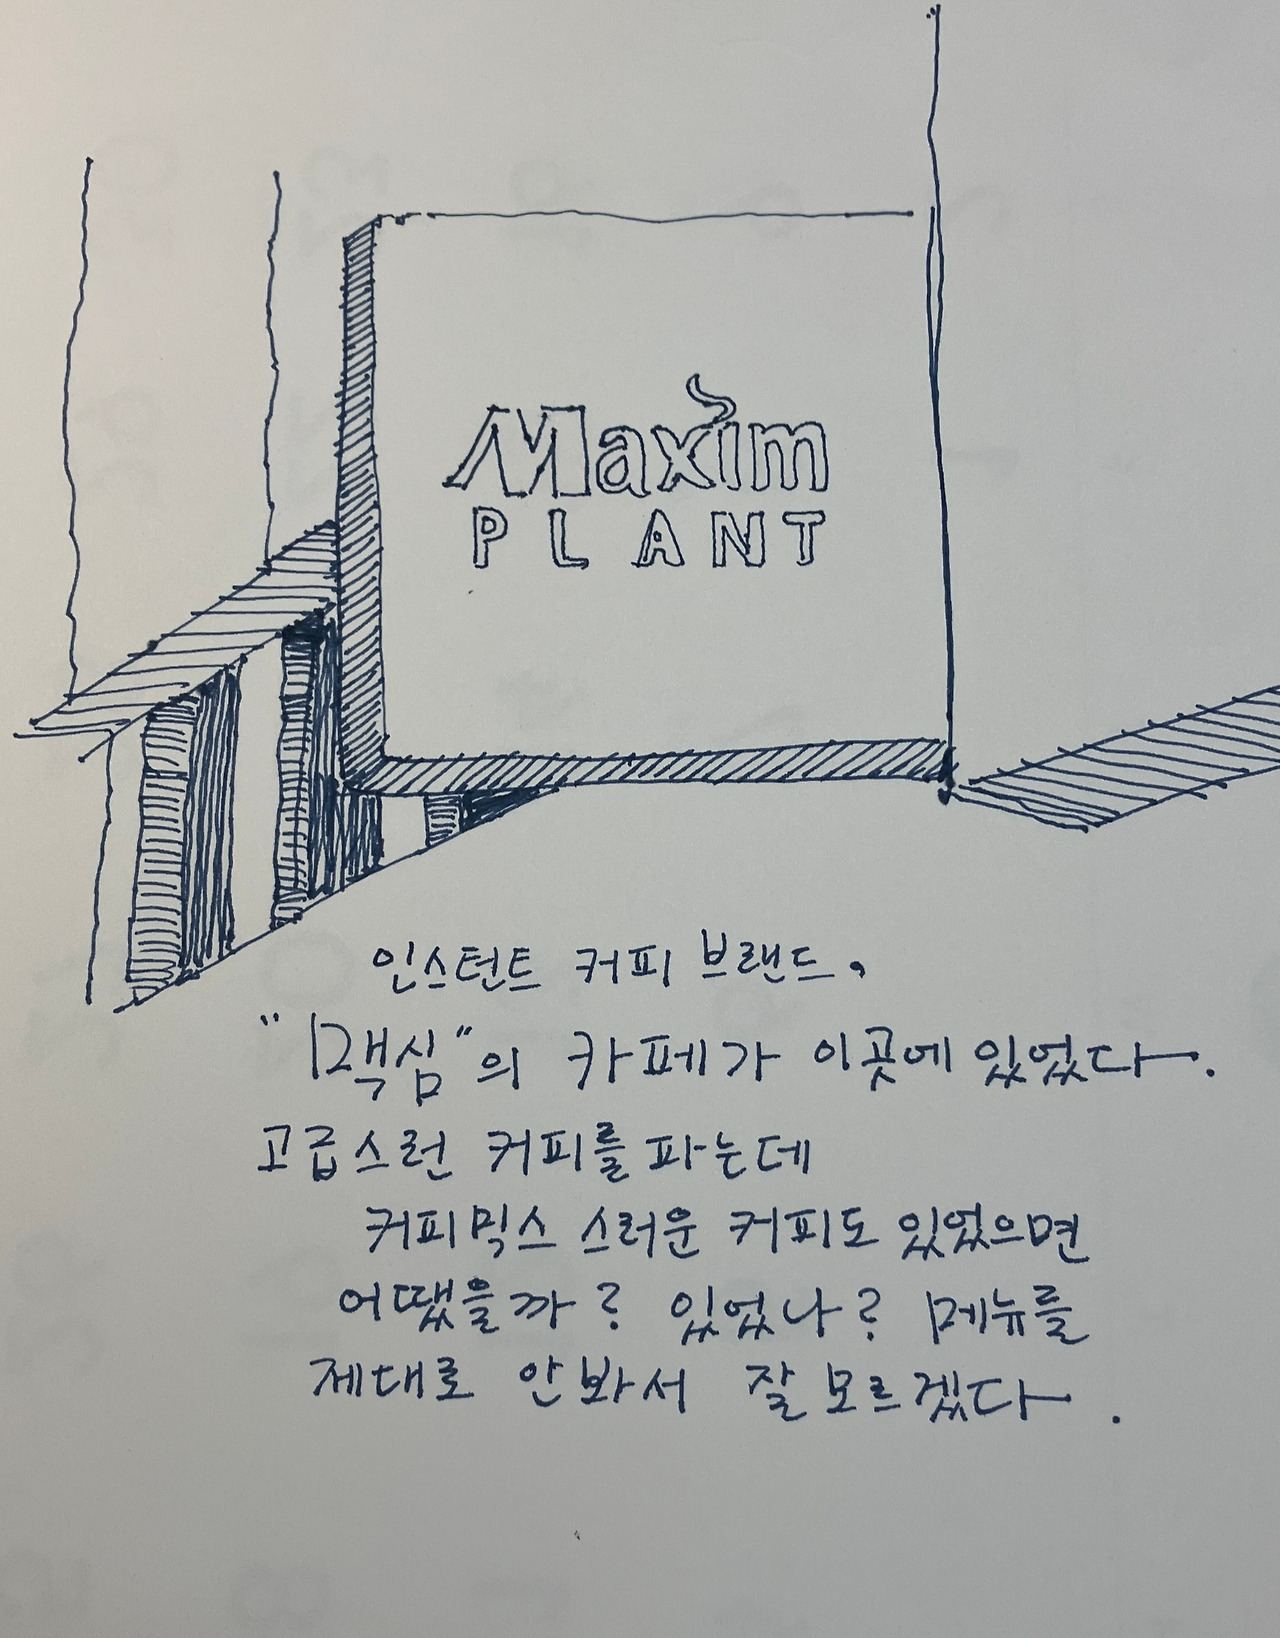 Maxim
PLANT
인스턴트 커피 브랜드,
"맥심"의 카페가 이곳에 있었다.
고급스런 커피를 파는데
커피믹스 스러운 커피도 있었으면
어땠을까? 있었나? 메뉴를
제대로 안봐서 잘 모르겠다.